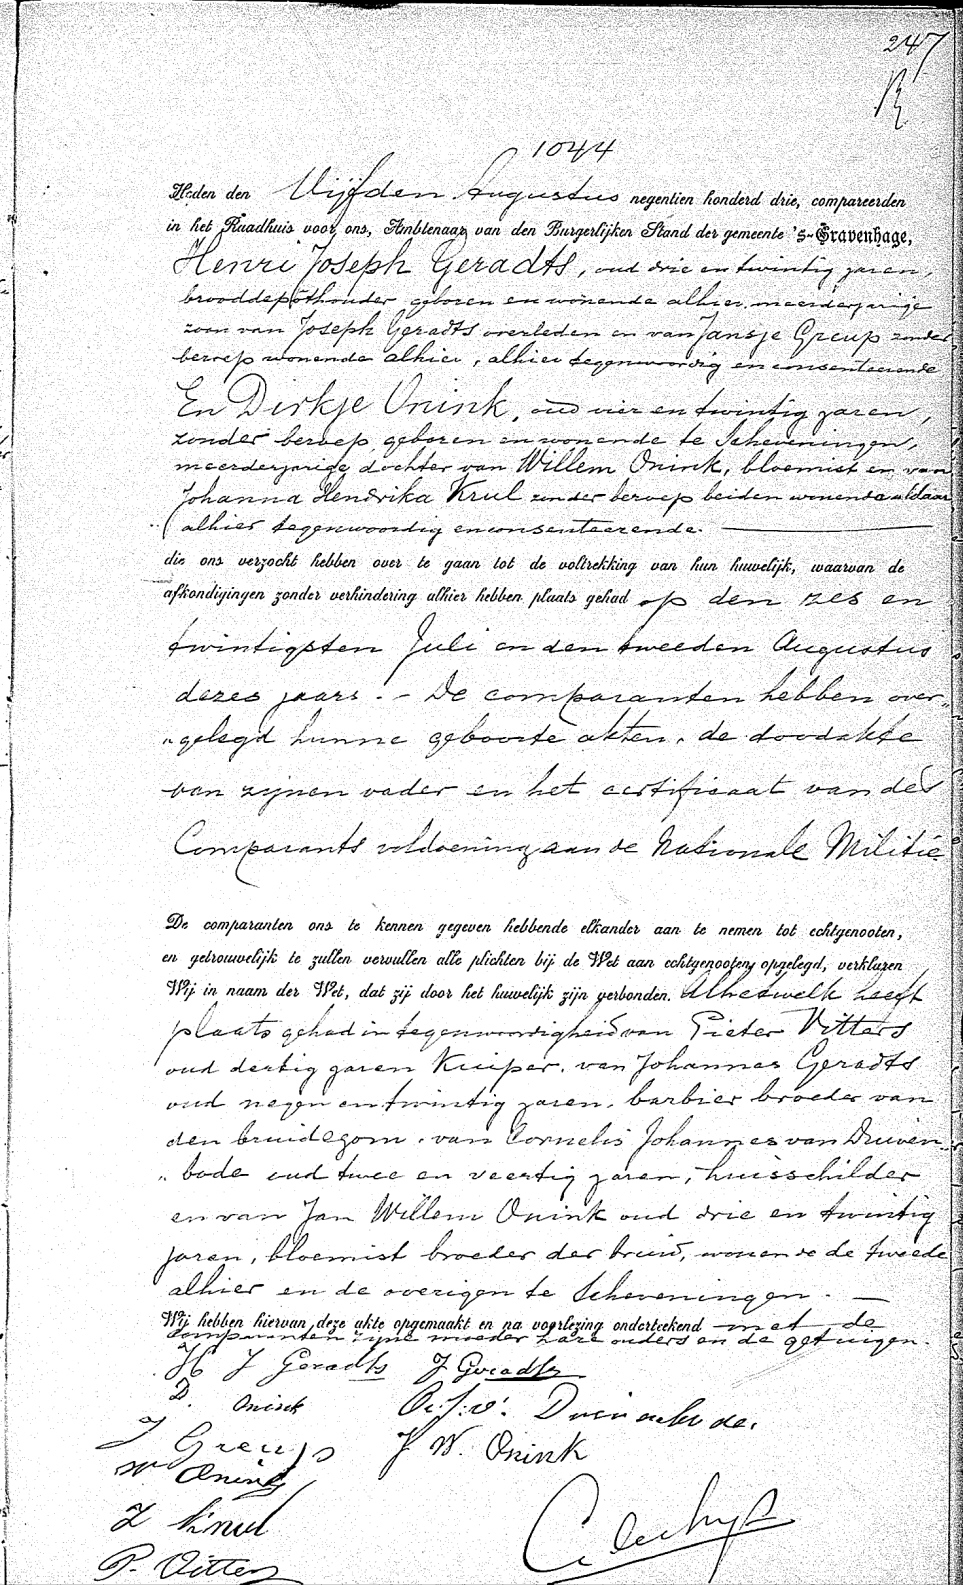 247
1044
Heden den Vijfden Augustus negentien honderd drie, compareerden
in het Raadhuis voor ons, Ambtenaar van den Burgerlijken Stand der gemeente 's-Gravenhage,
Henri Joseph Geradts, oud drie en twintig jaren,
brooddepôthouder geboren en wonende alhier, meerderjarige
zoon van Joseph Geradts overleden en van Jansje Greup zonder
beroep wonende alhier, alhier tegenwoordig en consenteerende
En Dirkje Onink, oud vier en twintig jaren,
zonder beroep, geboren en wonende te Scheveningen,
meerderjarige dochter van Willem Onink, bloemist en van
Johanna Hendrika Krul zonder beroep beiden wonende aldaar
alhier tegenwoordig en consenteerende.
die ons verzocht hebben over te gaan tot de voltrekking van hun huwelijk, waarvan de
afkondigingen zonder verhindering alhier hebben plaats gehad op den zes en
twintigsten Juli en den tweeden Augustus
dezes jaars. - De comparanten hebben over„
„gelegd hunne geboorte akten, de doodakte
van zijnen vader en het certificaat van des
Comparants voldoening aan de Nationale Militie
De comparanten ons te kennen gegeven hebbende elkander aan te nemen tot echtgenooten,
en getrouwelijk te zullen vervullen alle plichten bij de Wet aan echtgenooten opgelegd, verklaren
Wij in naam der Wet, dat zij door het huwelijk zijn verbonden. Alhetwelk heeft
plaats gehad in tegenwoordigheid van Pieter Vitters
oud dertig jaren Kuiper, van Johannes Geradts
oud negen en twintig jaren, barbier broeder van
den bruidegom, van Cornelis Johannes van Duiven„
„bode oud twee en veertig jaren, huisschilder
en van Jan Willem Onink oud drie en twintig
jaren, bloemist broeder der bruid, wonende de tweede
alhier en de overigen te Scheveningen. —
Wij hebben hiervan deze akte opgemaakt en na voorlezing onderteekend met de
comparanten zijne moeder hare ouders en de getuigen.
H J Geradts J Geradts
D. Onink C. J. v. Duivenbode.
J Greup J W. Onink
W Onink
J Krul
P. Vitters